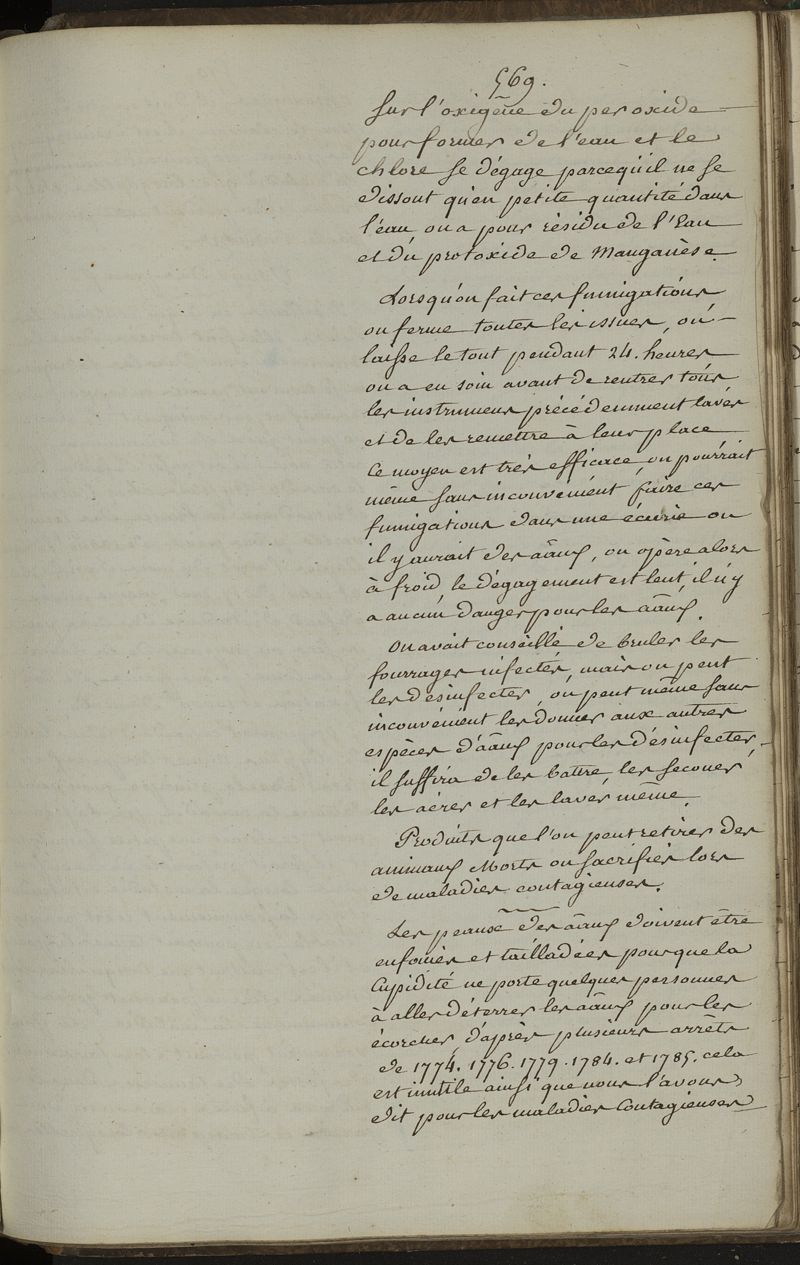 569.
sur l'oxigène du peroxide
pour former de l'eau et le
chlore se dégage parcequ'il ne se
dissout qu'en petite quantité dans
l'eau on a pour résidu de l'Eau
et du protoxide de Manganèse.
Lorsqu'on fait ces fumigations
on ferme toutes les issues, on
laisse le tout pendant 24. heures
on a eu soin avant de rentrer tous
les instrumens précédemment lavés
et de les remettre à leur place,
Ce moyen est très efficace, on pourrait
même sans inconvénient faire ces
fumigations dans une écurie ou
il y aurait des aāux, on opère alors
à froid, le dégagement est lent il n'y
a aucun danger pour les aāux.
On avait conseillé de bruler les
fourrages infectés, mais on peut
les desinfecter, on peut même sans
inconvénient les donner aux autres
espèces d'aāux pour les désinfecter,
il suffira de les battre, les secouer,
les aérer et les laver même.
Produits que l'on peut retirer des
animaux Morts ou sacrifiés lors
de maladies contagieuses.
Les peaux des aāux doivent être
enfouies et tailladées pour que la
Cupidité ne porte quelques personnes
à aller déterrer les aāux pour les
écorcher, d'après plusieurs arrêts
de 1774. 1776. 1779. 1784. et 1785. cela
est inutile ainsi que nous l'avons
dit pour les maladies Contagieuses